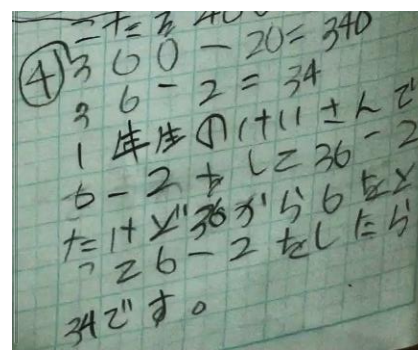 ④360-20=340
36-2=34
1年生のけいさんで
6-2をして36-2
だけど36から6をとっ
て6-2をしたら
34です。